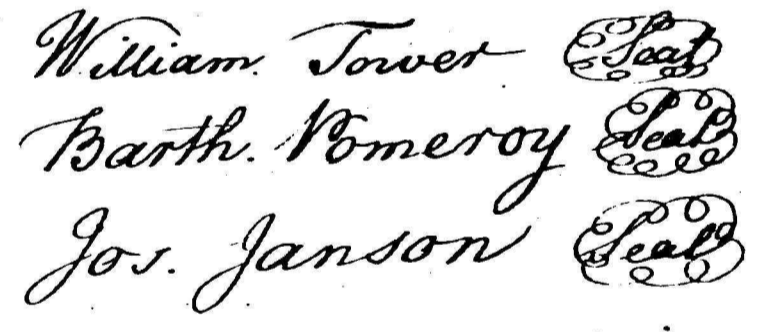 William Tower Seal
Barth. Pomeroy Seal
Jos. Janson Seal